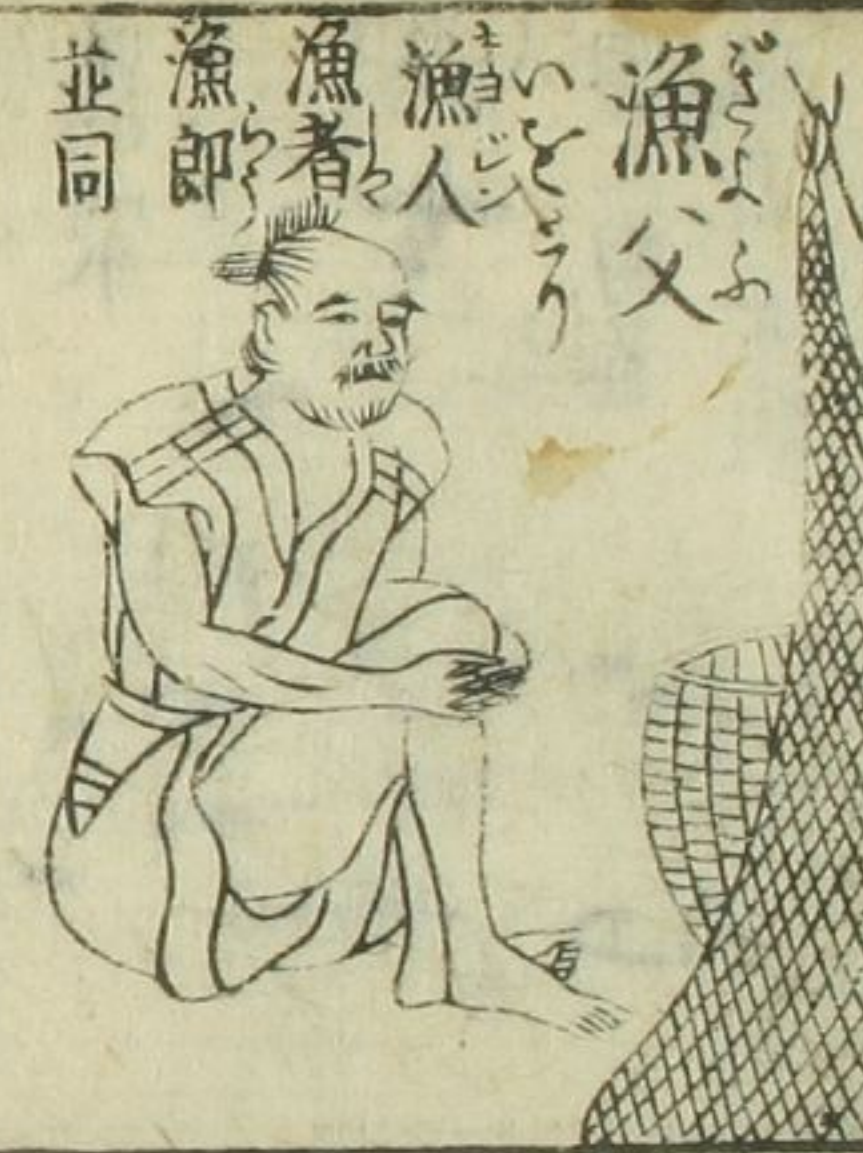 漁父
ぎよふ
いをとり
漁人
キヨジン
漁者
しや
漁郎
らう
並同